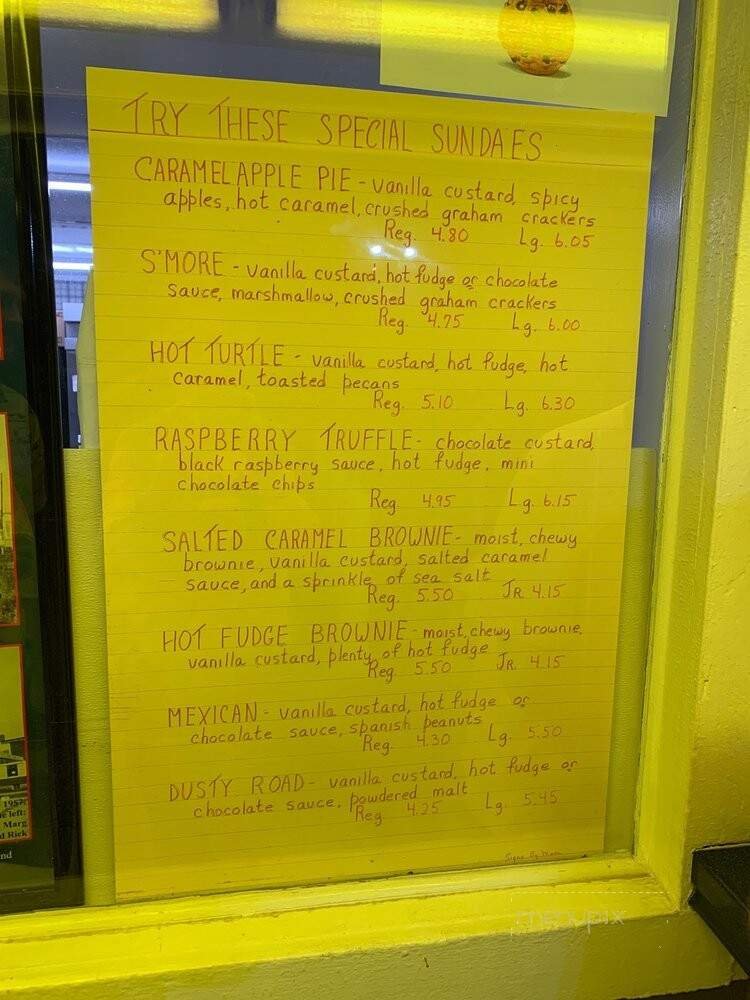 TRY THESE SPECIAL SUNDAES
CARAMEL APPLE PIE - vanilla custard, spicy
apples, hot caramel, crushed graham crackers
Reg. 4.80 Lg. 6.05
S'MORE - vanilla custard, hot fudge or chocolate
sauce, marshmallow, crushed graham crackers
Reg. 4.75 Lg. 6.00
HOT TURTLE - vanilla custard, hot fudge, hot
caramel, toasted pecans
Reg. 5.10 Lg. 6.30
RASPBERRY TRUFFLE - chocolate custard,
black raspberry sauce, hot fudge, mini
chocolate chips
Reg 4.95 Lg. 6.15
SALTED CARAMEL BROWNIE - moist, chewy
brownie, vanilla custard, salted caramel
sauce, and a sprinkle of sea salt
Reg. 5.50 JR 4.15
HOT FUDGE BROWNIE - moist, chewy brownie,
vanilla custard, plenty of hot fudge
Reg. 5.50 JR. 4.15
MEXICAN - vanilla custard, hot fudge or
chocolate sauce, spanish peanuts
Reg. 4.30 Lg. 5.50
DUSTY ROAD - vanilla custard, hot fudge or
chocolate sauce, powdered malt
Reg 4.25 Lg. 5.45
Signs By
1957
left:
Marg
Rick
menupix